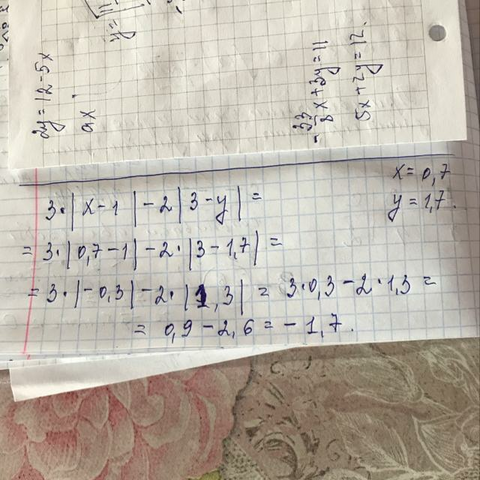 2y = 12 - 5x
ax
y =
8x + 3y = 11
5x + 2y = 12.
x = 0,7
y = 1,7.
3·|x-1| - 2|3-y| =
= 3·|0,7-1| - 2·|3-1,7| =
= 3·|-0,3| - 2·|1,3| = 3·0,3 - 2·1,3 =
= 0,9 - 2,6 = -1,7.